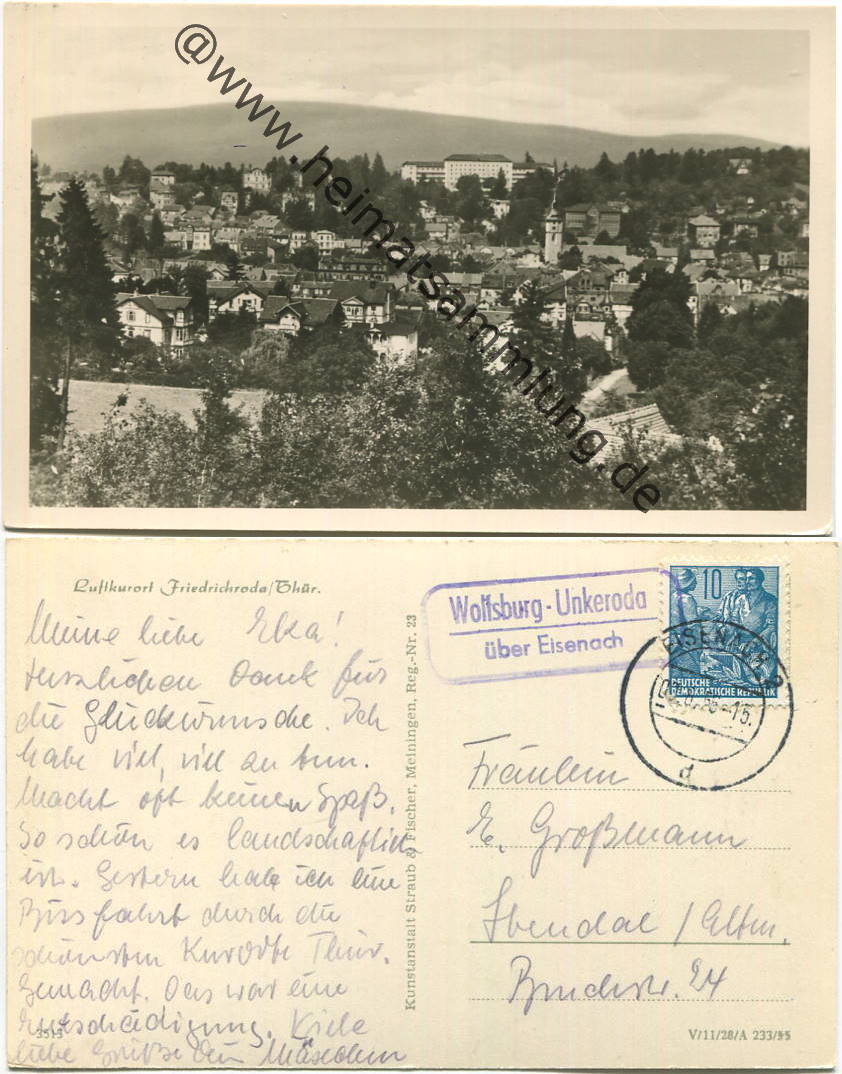 @www.heimatsammlung.de
Luftkurort Friedrichroda/Thür.
Meine liebe Eka!
Herzlichen Dank für
die Glückwünsche. Ich
habe viel, viel zu tun.
Macht oft keinen Spaß.
So schön es landschaftlich
ist. Gestern habe ich eine
Busfahrt durch die
schönsten Kurorte Thür.
gemacht. Das war eine
Entschädigung. Viele
liebe Grüße Dein
3513
Kunstanstalt Straub & Fischer, Meiningen, Reg.-Nr. 23
Wolfsburg-Unkeroda
über Eisenach
10
DEUTSCHE
DEMOKRATISCHE REPUBLIK
EISENACH 2
d
Fräulein
E. Großmann
Stendal / Altm.
Bruchstr. 24
V/11/28/A 233/55